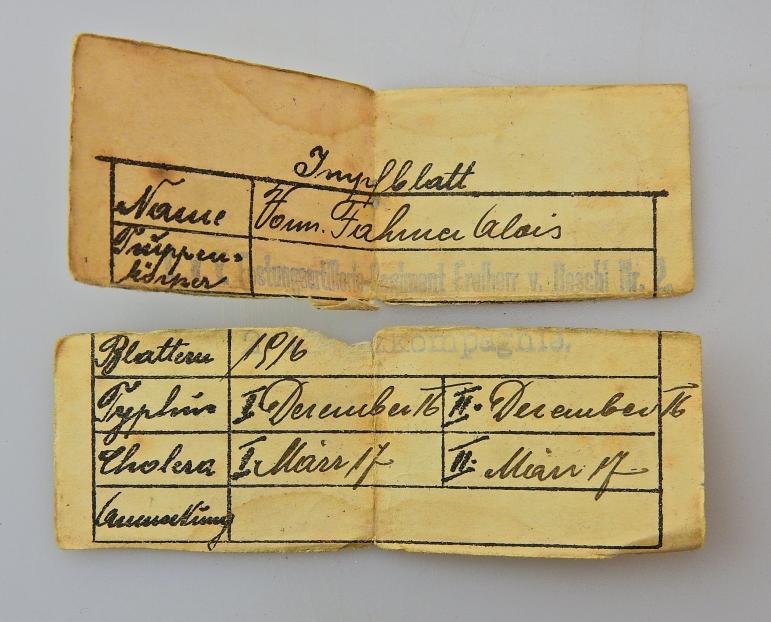 Impfblatt
Name Vorm. Fahrner Alois
Truppen-
körper k. k. Festungsartillerie-Regiment Freiherr v. Beschi Nr. 2.
kompagnie.
Blattern 1916
Typhus I. December 16 II. December 16
Cholera I. März 17 II. März 17
Anmerkung